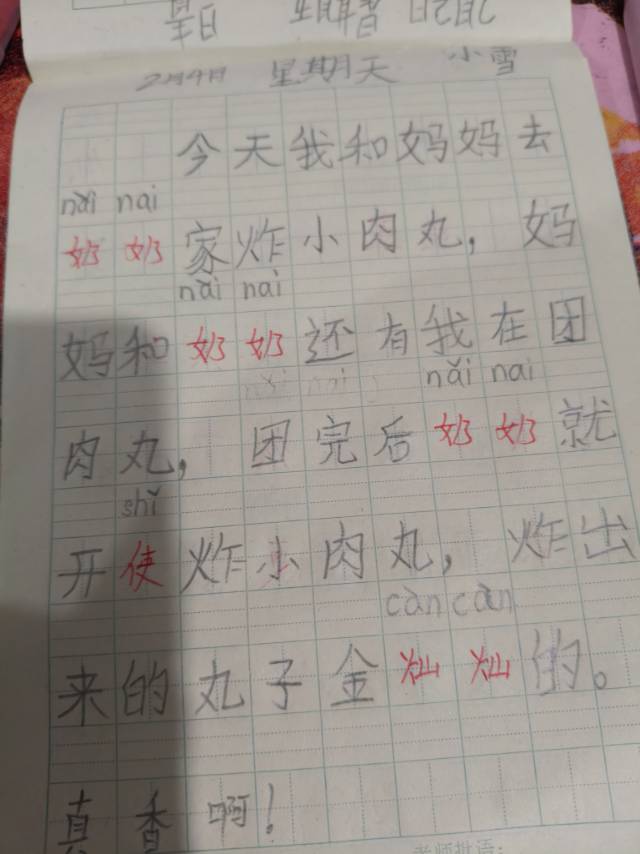 2月4日 星期天 小雪
今天我和妈妈去
nǎi nai
奶奶家炸小肉丸，妈
nǎi nai
妈和奶奶还有我在团
nǎi nai
肉丸，团完后奶奶就
shǐ
开使炸小肉丸，炸出
càn càn
来的丸子金灿灿的。
真香啊！
老师批语：